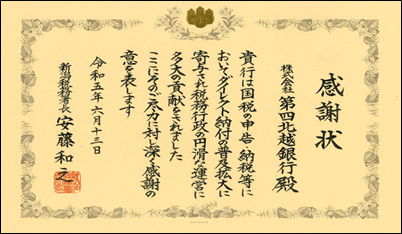 感謝状
株式会社 第四北越銀行殿
貴行は国税の申告・納税等に
おいてダイレクト納付の普及拡大に
寄与され税務行政の円滑な運営に
多大の貢献をされました
ここにそのご尽力に対し深く感謝の
意を表します
令和五年六月十三日
新潟税務署長 安藤和之